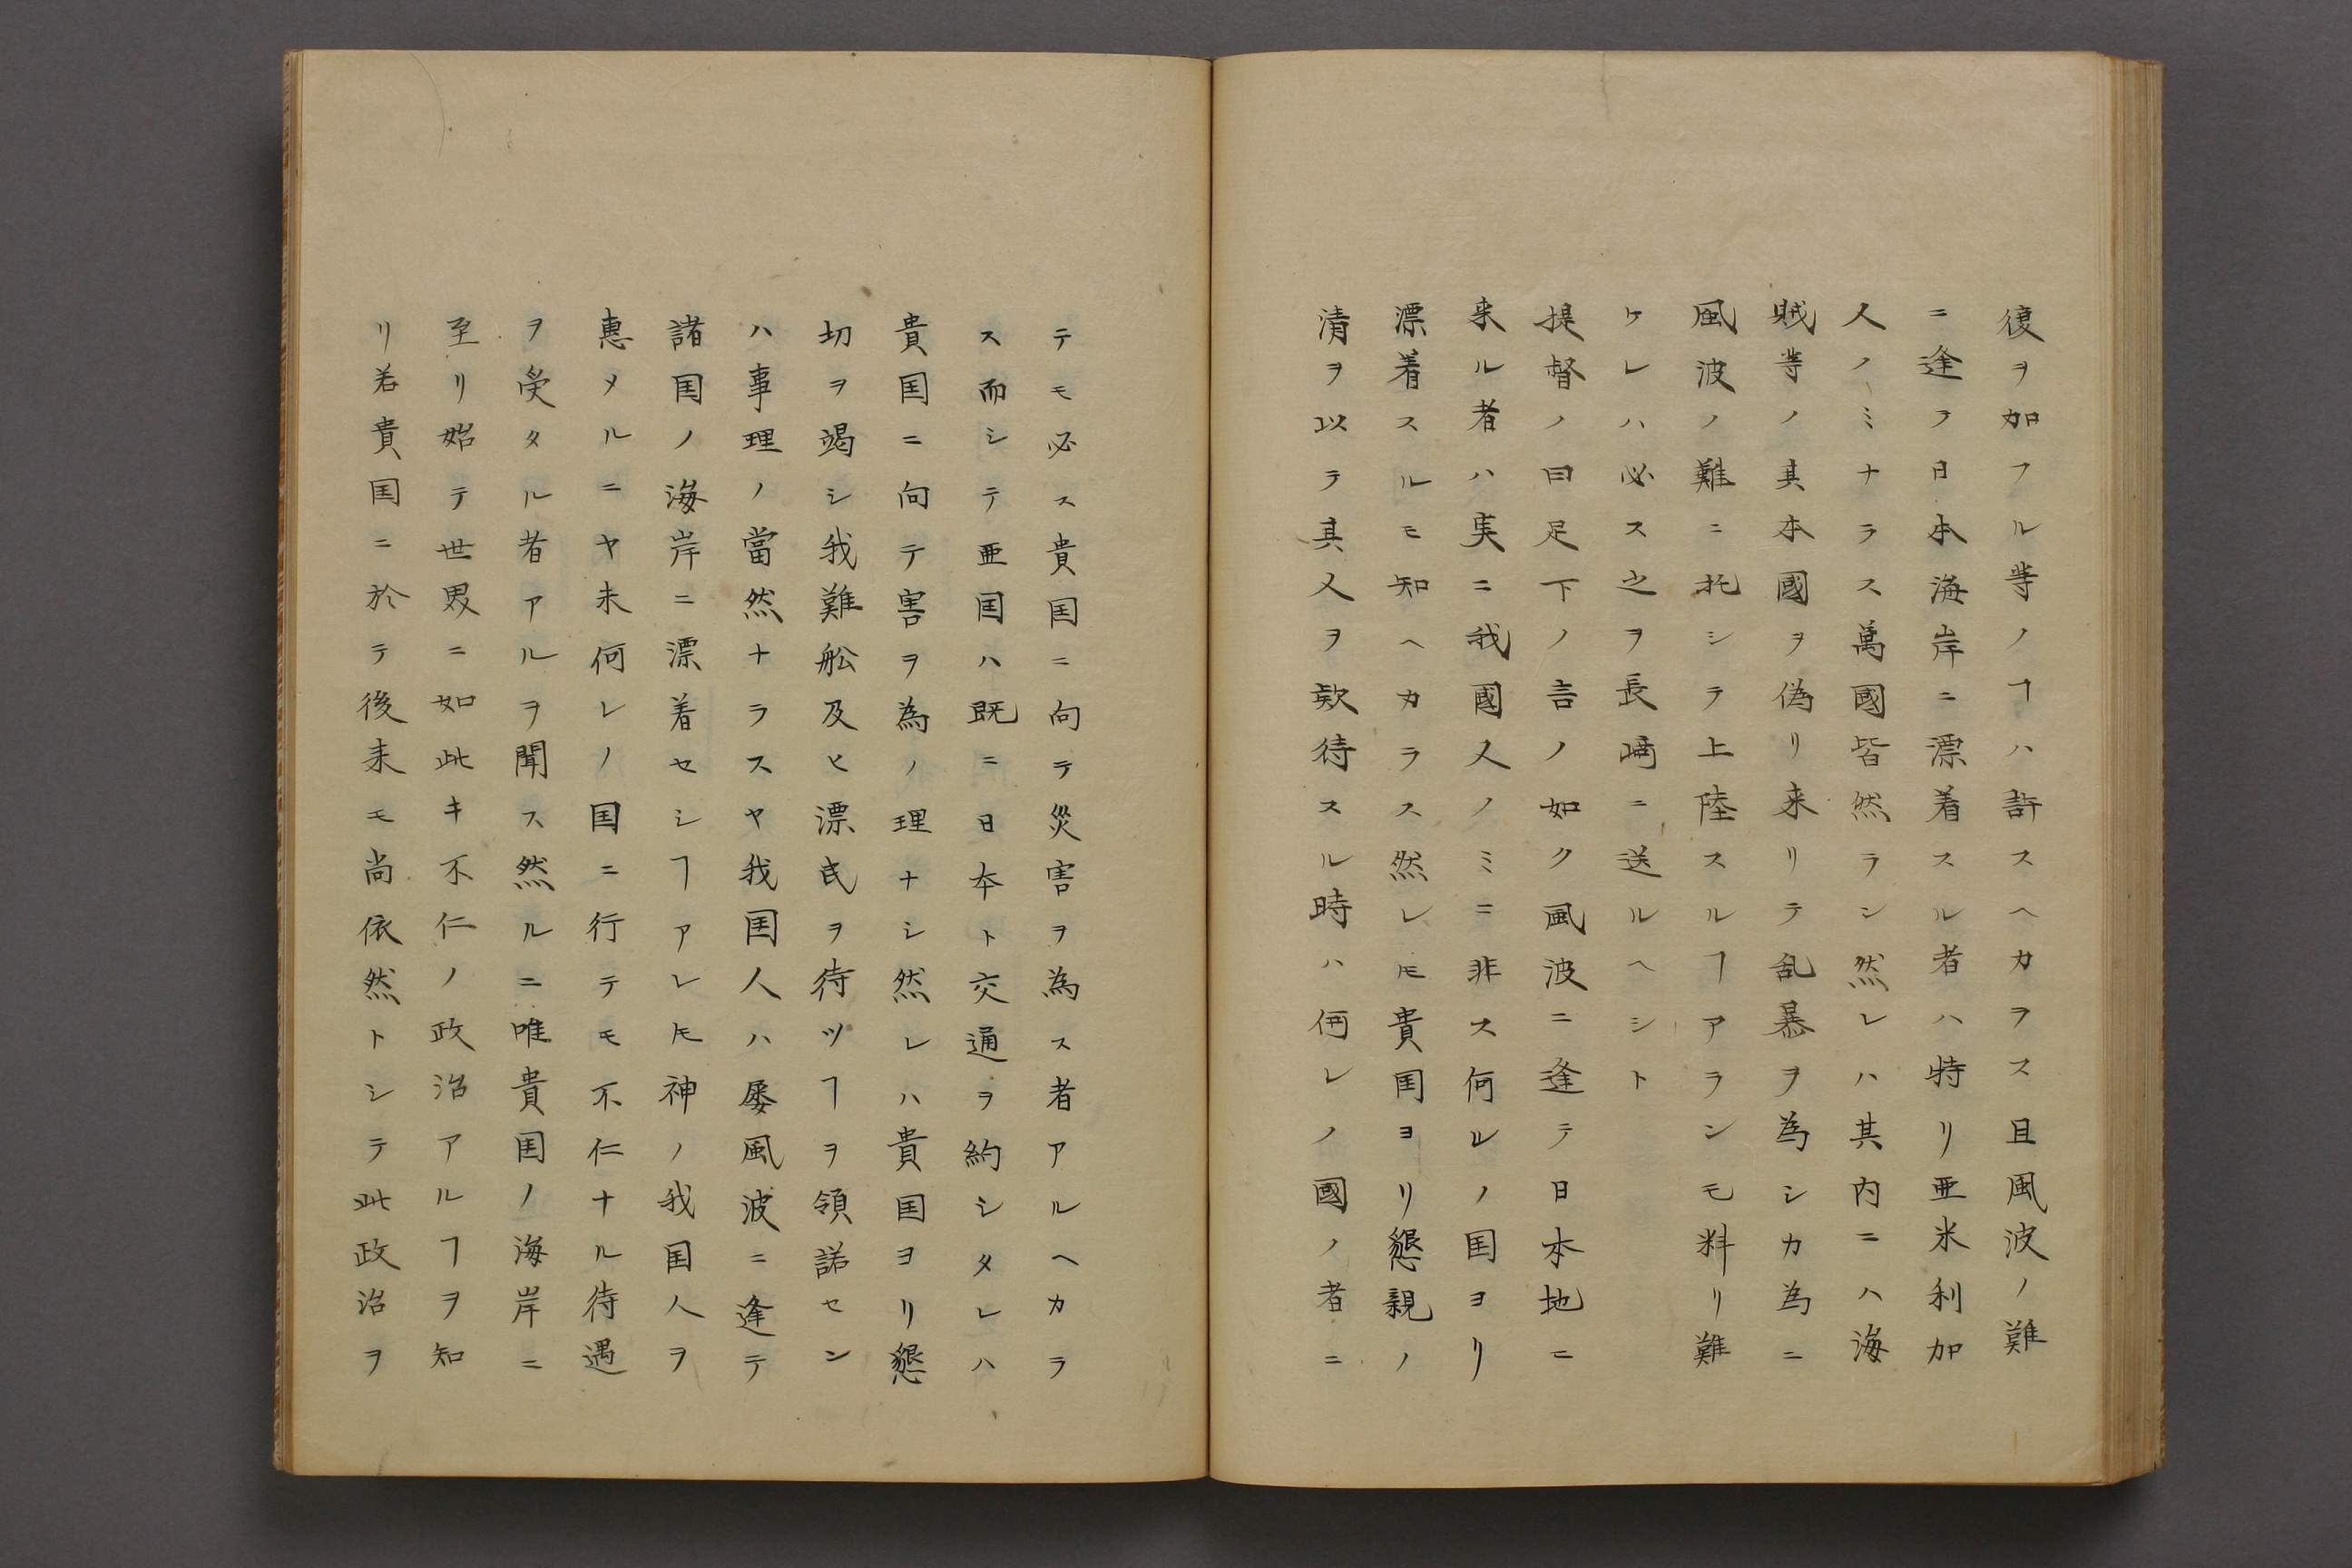 復ヲ加フル等ノヿハ許スヘカラス且風波ノ難
ニ逢ヲ日本海岸ニ漂着スル者ハ特リ亜米利加
人ノミナラス萬國皆然ラン然レハ其内ニハ海
賊等ノ其本國ヲ偽リ来リテ乱暴ヲ為シカ為ニ
風波ノ難ニ托シテ上陸スルヿアランモ料リ難
ケレハ必ス之ヲ長崎ニ送ルヘシト
提督ノ曰足下ノ言ノ如ク風波ニ逢テ日本地ニ
来ル者ハ実ニ我國人ノミニ非ス何ルノ国ヨリ
漂着スルモ知ヘカラス然レ𪜈貴国ヨリ懇親ノ
情ヲ以テ其人ヲ欵待スル時ハ何レノ國ノ者ニ
テモ必ス貴国ニ向テ災害ヲ為ス者アルヘカラ
ス而シテ亜国ハ既ニ日本ト交通ヲ約シタレハ
貴国ニ向テ害ヲ為ノ理ナシ然レハ貴国ヨリ懇
切ヲ竭シ我難舩及ヒ漂民ヲ待ツヿヲ領諾セン
ハ事理ノ當然ナラスヤ我国人ハ屡風波ニ逢テ
諸国ノ海岸ニ漂着セシヿアレ𪜈神ノ我国人ヲ
惠メルニヤ未何レノ国ニ行テモ不仁ナル待遇
ヲ受タル者アルヲ聞ス然ルニ唯貴国ノ海岸ニ
至リ始テ世界ニ如此キ不仁ノ政治アルヿヲ知
リ若貴国ニ於テ後来モ尚依然トシテ此政治ヲ